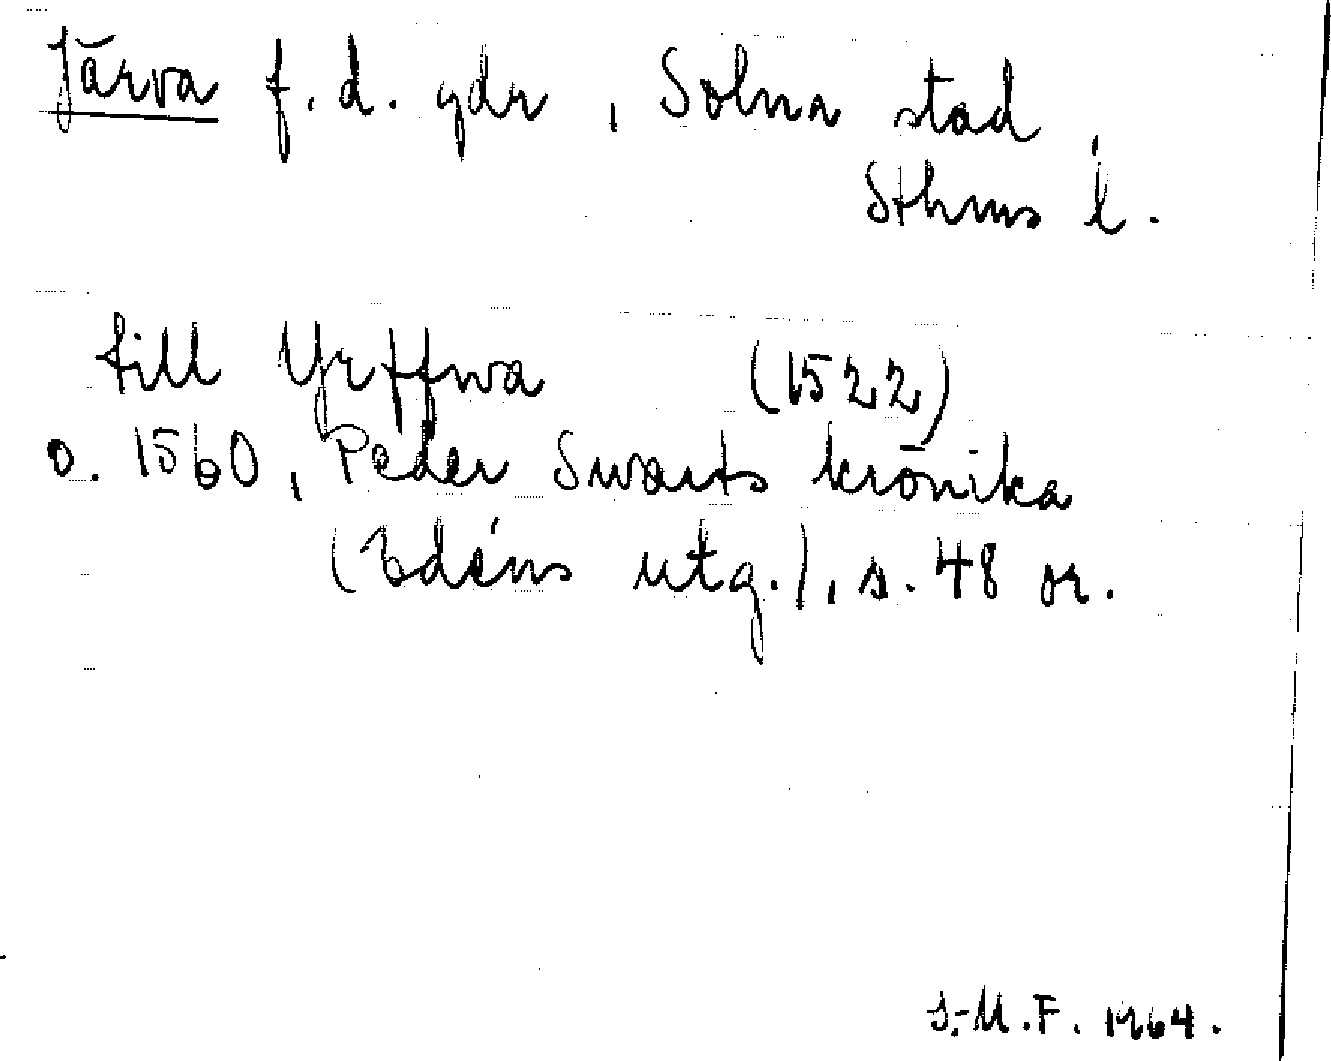 Järva f. d. gdr, Solna stad,
Sthms l.
till Yrffwa (1522)
o. 1560, Peder Swarts krönika
(Edéns utg.), s. 48 or.
S.-M.F. 1964.